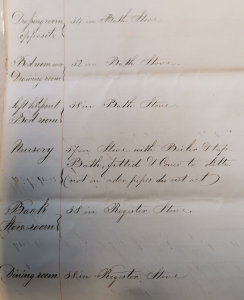 Dressing room opposite } 34 in Bath Stove
Bed room over Drawing room } 32 in Bath Stove.
Left hand front Bed room } 38 in Bath Stove.
Nursery 37 in Stove with Boiler & top
Bath, fitted & Oven to
(not in order pipes do not act)
Back Store room } 38 in Register Stove.
Dining room 38 in Register Stove